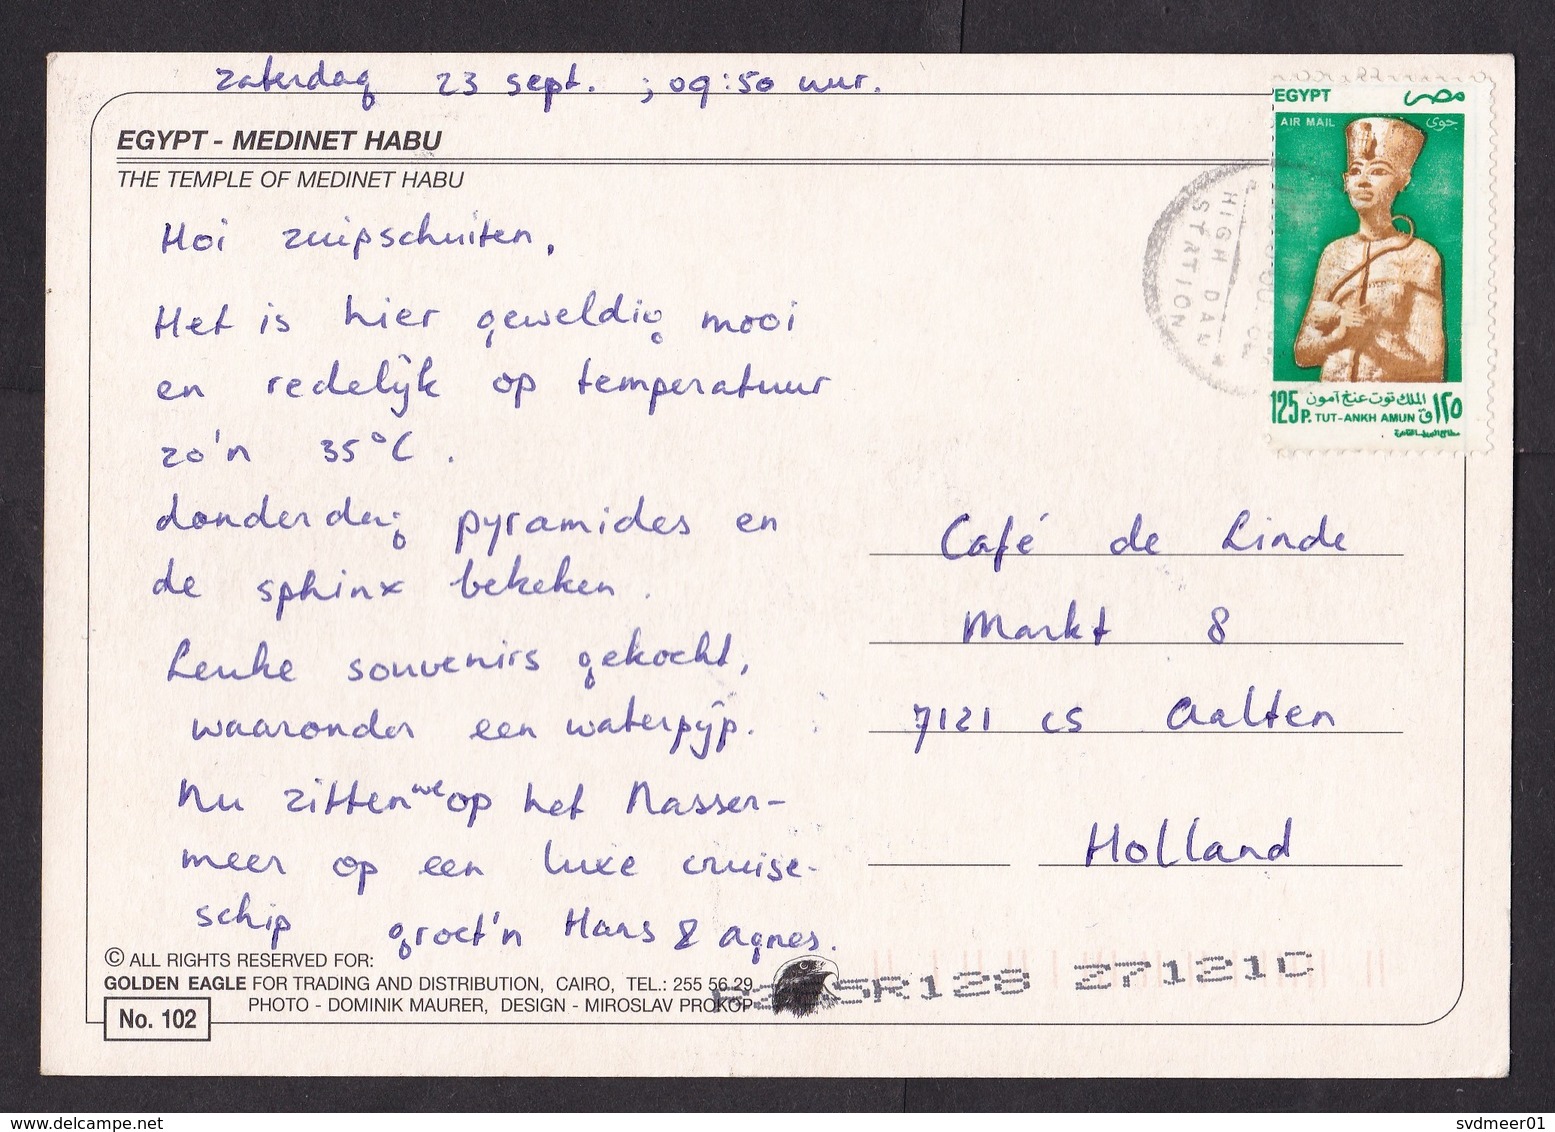 zaterdag 23 sept. ; 09:50 uur.
EGYPT - MEDINET HABU
THE TEMPLE OF MEDINET HABU
Hoi zuipschuiten,
Het is hier geweldig mooi
en redelijk op temperatuur
zo'n 35°C.
donderdag pyramides en
de sphinx bekeken.
Leuke souvenirs gekocht,
waaronder een waterpijp.
Nu zitten we op het Nasser-
meer op een luxe cruise-
schip groet'n Hans & Agnes.
EGYPT مصر
AIR MAIL جوى
الملك توت عنخ آمون
125P. TUT-ANKH AMUN ١٢٥ق
HIGH DAM
STATION
Café de Linde
Markt 8
7121 CS Aalten
Holland
© ALL RIGHTS RESERVED FOR:
GOLDEN EAGLE FOR TRADING AND DISTRIBUTION, CAIRO, TEL.: 255 56 29
PHOTO - DOMINIK MAURER, DESIGN - MIROSLAV PROKOP
No. 102
SR128 27121C
www.delcampe.net
svdmeer01